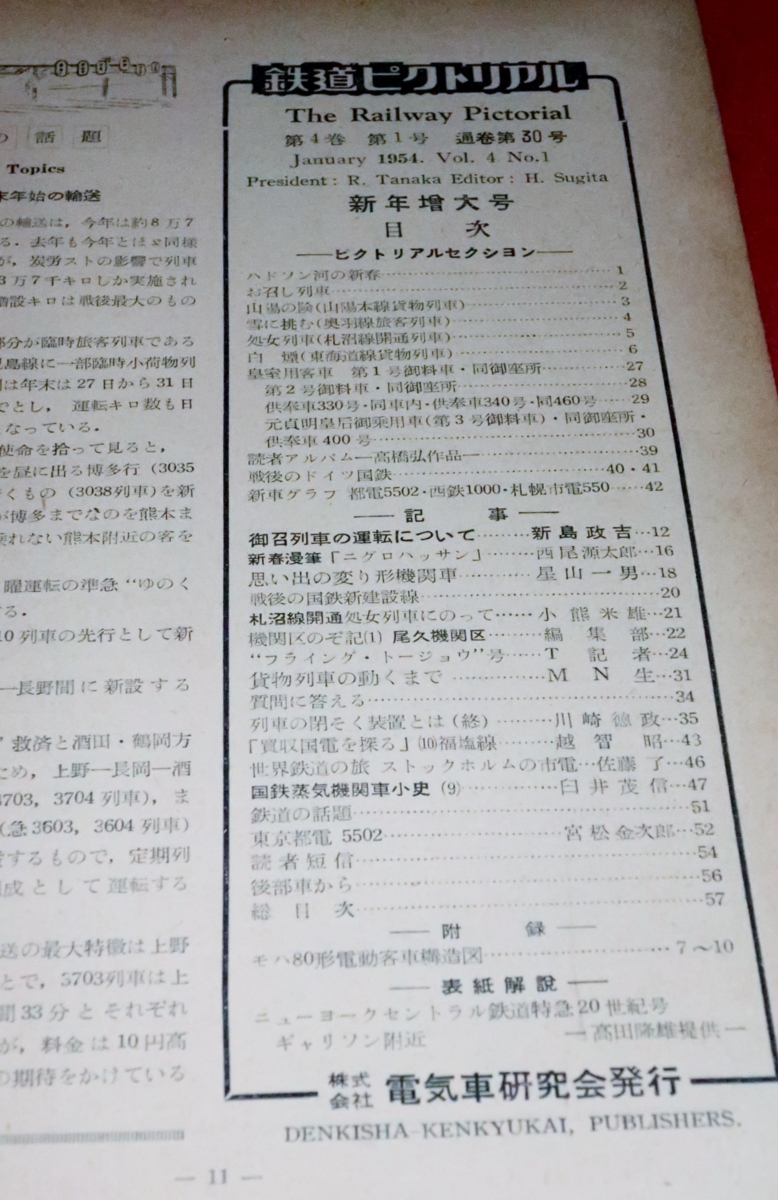 の 話 題
Topics
末年始の輸送
の輸送は，今年は約8万7
る．去年も今年とほゞ同様
が，炭労ストの影響で列車
3万7千キロしか実施され
増設キロは戦後最大のもの
部分が臨時旅客列車である
児島線に一部臨時小荷物列
間は年末は27日から31日
でとし， 運転キロ数も日
なっている．
使命を拾って見ると，
を昼に出る博多行 (3035
くもの (3038列車)を新
が博多までなのを熊本ま
乗れない熊本附近の客を
曜運転の準急 “ゆのく
する．
10列車の先行として新
―長野間に新設する
救済と酒田・鶴岡方
ため，上野―長岡―酒
3703, 3704 列車)，ま
(急3603, 3604 列車)
するもので，定期列
成として運転する
送の最大特徴は上野
とで，3703列車は上
間33分とそれぞれ
が，料金は10円高
の期待をかけている
鉄道ピクトリアル
The Railway Pictorial
第4巻 第1号 通巻第30号
January 1954. Vol. 4 No.1
President : R. Tanaka Editor : H. Sugita
新年増大号
目 次
―ピクトリアルセクション―
ハドソン河の新春……1
お召し列車……2
山陽の険(山陽本線貨物列車)……3
雪に挑む(奥羽線旅客列車)……4
処女列車(札沼線開通列車)……5
白 煙(東海道線貨物列車)……6
皇室用客車 第1号御料車・同御座所……27
第2号御料車・同御座所……28
供奉車330号・同車内・供奉車340号・同460号……29
元貞明皇后御乗用車(第3号御料車)・同御座所・
供奉車400号……30
読者アルバム―高橋弘作品―……39
戦後のドイツ国鉄……40・41
新車グラフ 都電5502・西鉄1000・札幌市電550……42
―記 事―
御召列車の運転について……新島政吉…12
新春漫筆「ニグロハッサン」……西尾源太郎…16
思い出の変り形機関車……星山一男…18
戦後の国鉄新建設線……20
札沼線開通処女列車にのって……小熊米雄…21
機関区のぞ記(1) 尾久機関区……編集部…22
“フライング・トージョウ”号……T 記者…24
貨物列車の動くまで……M N 生…31
質問に答える……34
列車の閉そく装置とは(終)……川崎徳政…35
『買収国電を探る』(10)福塩線……越智 昭…43
世界鉄道の旅 ストックホルムの市電…佐藤 了…46
国鉄蒸気機関車小史 (9)……臼井茂信…47
鉄道の話題……51
東京都電 5502……宮松金次郎…52
読者短信……54
後部車から……56
総目次……57
―附 録―
モハ80形電動客車構造図……7〜10
―表紙解説―
ニューヨークセントラル鉄道特急20世紀号
ギャリソン附近 ―高田隆雄提供―
株式会社 電気車研究会発行
DENKISHA-KENKYUKAI, PUBLISHERS.
― 11 ―